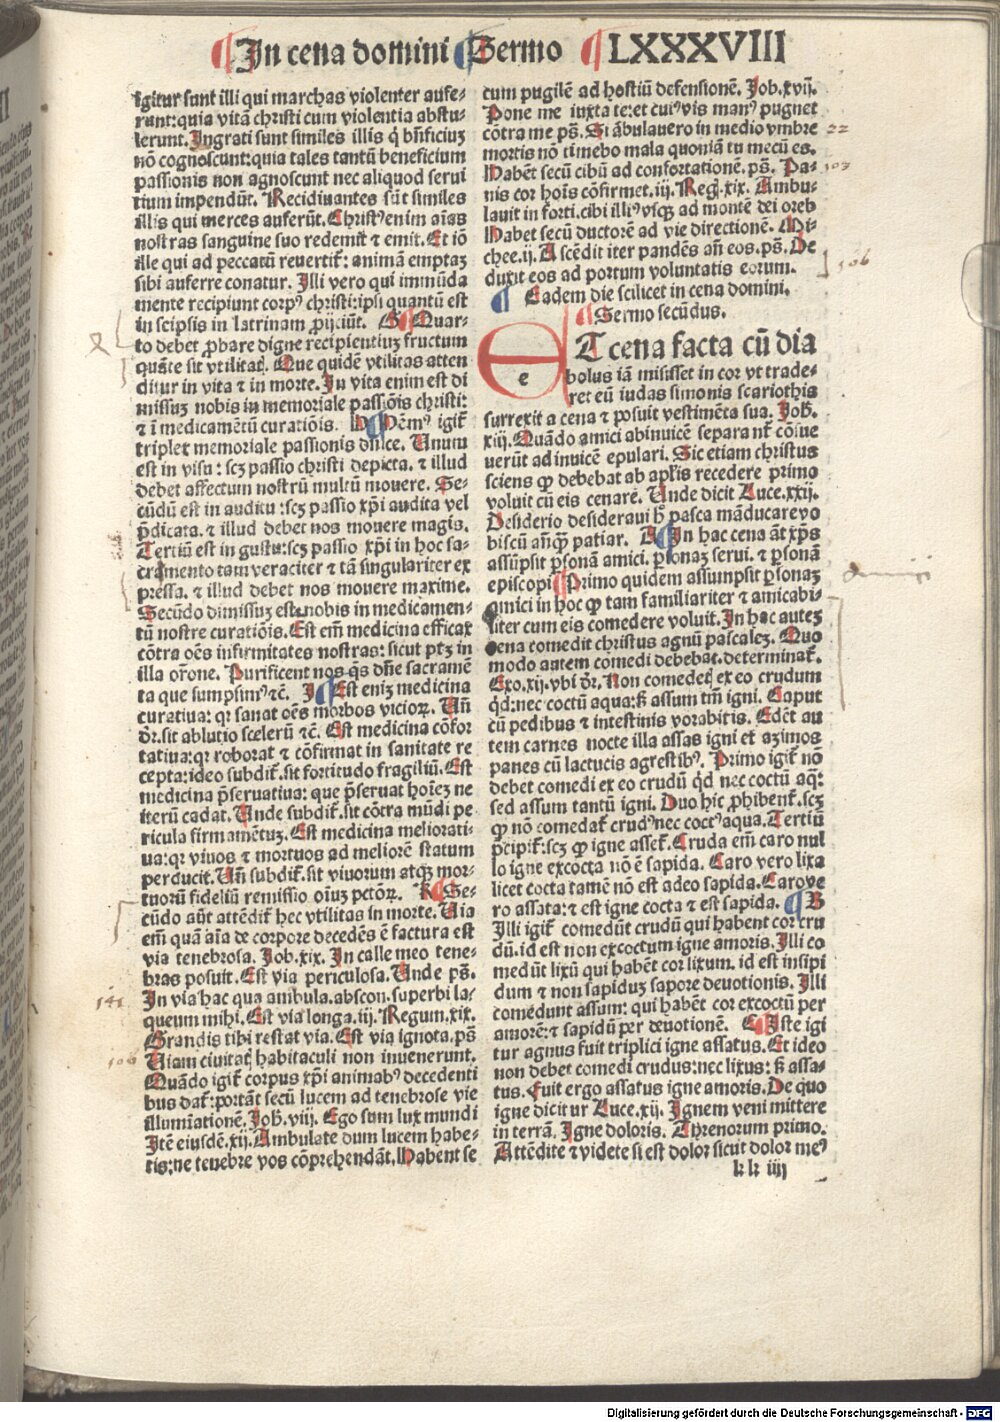 ¶ In cena domini ¶ Sermo ¶ LXXXVIII
igitur sunt illi qui marchas violenter aufe-
runt: quia vitã christi cum violentia abstu-
lerunt. Ingrati sunt similes illis q̇ bñficiuꝫ
nõ cognoscunt: quia tales tantũ beneficium
passionis non agnoscunt nec aliquod serui
tium impendũt. Recidiuantes sũt similes
illis qui merces auferũt. Christꝰ enim aĩas
nostras sanguine suo redemit ⁊ emit. Et iõ
ille qui ad peccatũ reuertit̃: animã emptaꝫ
sibi auferre conatur. Illi vero qui immũda
mente recipiunt corpꝰ christi: ipsi quantũ est
in seipsis in latrinam ꝓijciũt. G ¶ Quar-
to debet ꝓbare digne recipientiuꝫ fructum
quãte sit vtilitaꝭ. Que quidẽ vtilitas atten
ditur in vita ⁊ in morte. In vita enim est di
missuꝫ nobis in memoriale passiõis christi:
⁊ ĩ medicamẽtũ curatiõis. H ¶ Hẽmꝰ igit̃
triplex memoriale passionis dñice. Unum
est in visu: scꝫ passio christi depicta. ⁊ illud
debet affectum nostrũ multũ mouere. Se-
cũdũ est in auditu: scꝫ passio xp̃i audita vel
p̃dicata. ⁊ illud debet nos mouere magis.
Tertiũ est in gustu: scꝫ passio xp̃i in hoc sa-
cramento tam veraciter ⁊ tã singulariter ex
pressa. ⁊ illud debet nos mouere maxime.
Secũdo dimissuꝫ est nobis in medicamen-
tũ nostre curatiõis. Est em̃ medicina efficax
cõtra oẽs infirmitates nostras: sicut ptꝫ in
illa or̃one. Purificent nos q̃s dñe sacramẽ
ta que sumpsimꝰ ⁊c̃. I ¶ Est eniꝫ medicina
curatiua: qꝛ sanat oẽs morbos vicioꝝ. Uñ
dꝛ̃. sit ablutio scelerũ ⁊c̃. Est medicina cõfor
tatiua: qꝛ roborat ⁊ cõfirmat in sanitate re
cepta: ideo subdit̃. sit fortitudo fragiliũ. Est
medicina p̃seruatiua: que p̃seruat hoĩeꝫ ne
iterũ cadat. Unde subdit̃. sit cõtra mũdi pe
ricula firmamẽtuꝫ. Est medicina meliorati-
ua: qꝛ viuos ⁊ mortuos ad meliorẽ statum
perducit. Uñ subdit̃. sit viuorum atqꝫ mor-
tuorũ fideliũ remissio oĩuꝫ pctõꝝ. K ¶ Se-
cũdo aũt attẽdit̃ hec vtilitas in morte. Uia
em̃ quã aĩa de corpore decedẽs ẽ factura est
via tenebrosa. Job. xix. In calle meo tene-
bras posuit. Est via periculosa. Unde ps̃.
In via hac qua ambula. abscon. superbi la-
queum mihi. Est via longa. iij. Regum. xix.
Grandis tibi restat via. Est via ignota. ps̃
Uiam ciuitaꝭ habitaculi non inuenerunt.
Quãdo igit̃ corpus xp̃i animabꝰ decedenti
bus dat̃: portãt secũ lucem ad tenebrose vie
illuminationẽ. Joh̃. viij. Ego sum lux mundi
Itẽ eiusdẽ. xij. Ambulate dum lucem habe-
tis: ne tenebre vos cõprehendãt. Habent se
cum pugilẽ ad hostiũ defensionẽ. Job. xvij.
Pone me iuxta te: et cuiꝰvis manꝰ pugnet
cõtra me ps̃. Si ãbulauero in medio vmbre
mortis nõ timebo mala quoniã tu mecũ es.
Habẽt secũ cibũ ad confortationẽ. ps̃. Pa-
nis cor hoĩs cõfirmet. iij. Reg̃. xix. Ambu-
lauit in forti. cibi illiꝰ vsqꝫ ad montẽ dei oreb
Habet secũ ductorẽ ad vie directionẽ. Mi-
chee. ij. Ascẽdit iter pandẽs añ eos. ps̃. De
duxit eos ad portum voluntatis eorum.
¶ Eadem die scilicet in cena domini.
¶ Sermo secũdus.
ET cena facta cũ dia
e
bolus iã misisset in cor vt trade-
ret eũ iudas simonis scariothis
surrexit a cena ⁊ posuit vestimẽta sua. Joh̃.
xiij. Quãdo amici abinuicẽ separant̃ cõsue
uerũt ad inuicẽ epulari. Sic etiam christus
sciens ꝙ debebat ab apl̃is recedere primo
voluit cũ eis cenare. Unde dicit Luce. xxij.
Desiderio desideraui h̃ pasca mãducare vo
biscũ añqꝫ patiar. A ¶ In hac cena ãt xp̃s
assũpsit ꝑsonã amici. ꝑsonaꝫ serui. ⁊ ꝑsonã
episcopi ¶ Primo quidem assumpsit ꝑsonaꝫ
amici in hoc ꝙ tam familiariter ⁊ amicabi-
liter cum eis comedere voluit. In hac auteꝫ
cena comedit christus agnũ pascaleꝫ. Quo
modo autem comedi debebat. determinat̃.
Exo. xij. vbi dꝛ̃. Non comedeꝭ ex eo crudum
qͥd: nec coctũ aqua: ß assum tm̃ igni. Caput
cũ pedibus ⁊ intestinis vorabitis. Edẽt au
tem carnes nocte illa assas igni et azimos
panes cũ lactucis agrestibꝰ. Primo igit̃ nõ
debet comedi ex eo crudũ qͥd nec coctũ aq̃:
sed assum tantũ igni. Duo hic ꝓhibent̃. scꝫ
ꝙ nõ comedat̃ crudꝰ nec coctꝰ aqua. Tertiũ
p̃cipit̃: scꝫ ꝙ igne asset̃. Cruda em̃ caro nul
lo igne excocta nõ ẽ sapida. Caro vero lixa
licet cocta tamẽ nõ est adeo sapida. Caro ve
ro assata: ⁊ est igne cocta ⁊ est sapida. ¶ B
Illi igit̃ comedũt crudũ qui habent cor cru
dũ. id est non excoctum igne amoris. Illi co
medũt lixũ qui habẽt cor lixum. id est insipi
dum ⁊ non sapiduꝫ sapore deuotionis. Illi
comedunt assum: qui habẽt cor excoctũ per
amorẽ: ⁊ sapidũ per deuotionẽ. C ¶ Iste igi
tur agnus fuit triplici igne assatus. Et ideo
non debet comedi crudus: nec lixus: ß assa-
tus. Fuit ergo assatus igne amoris. De quo
igne dicitur Luce. xij. Ignem veni mittere
in terrã. Igne doloris. Threnorum primo.
Attẽdite ⁊ videte si est dolor sicut dolor meꝰ
kk iiij
22
103
106
141
106
Digitalisierung gefördert durch die Deutsche Forschungsgemeinschaft - DFG